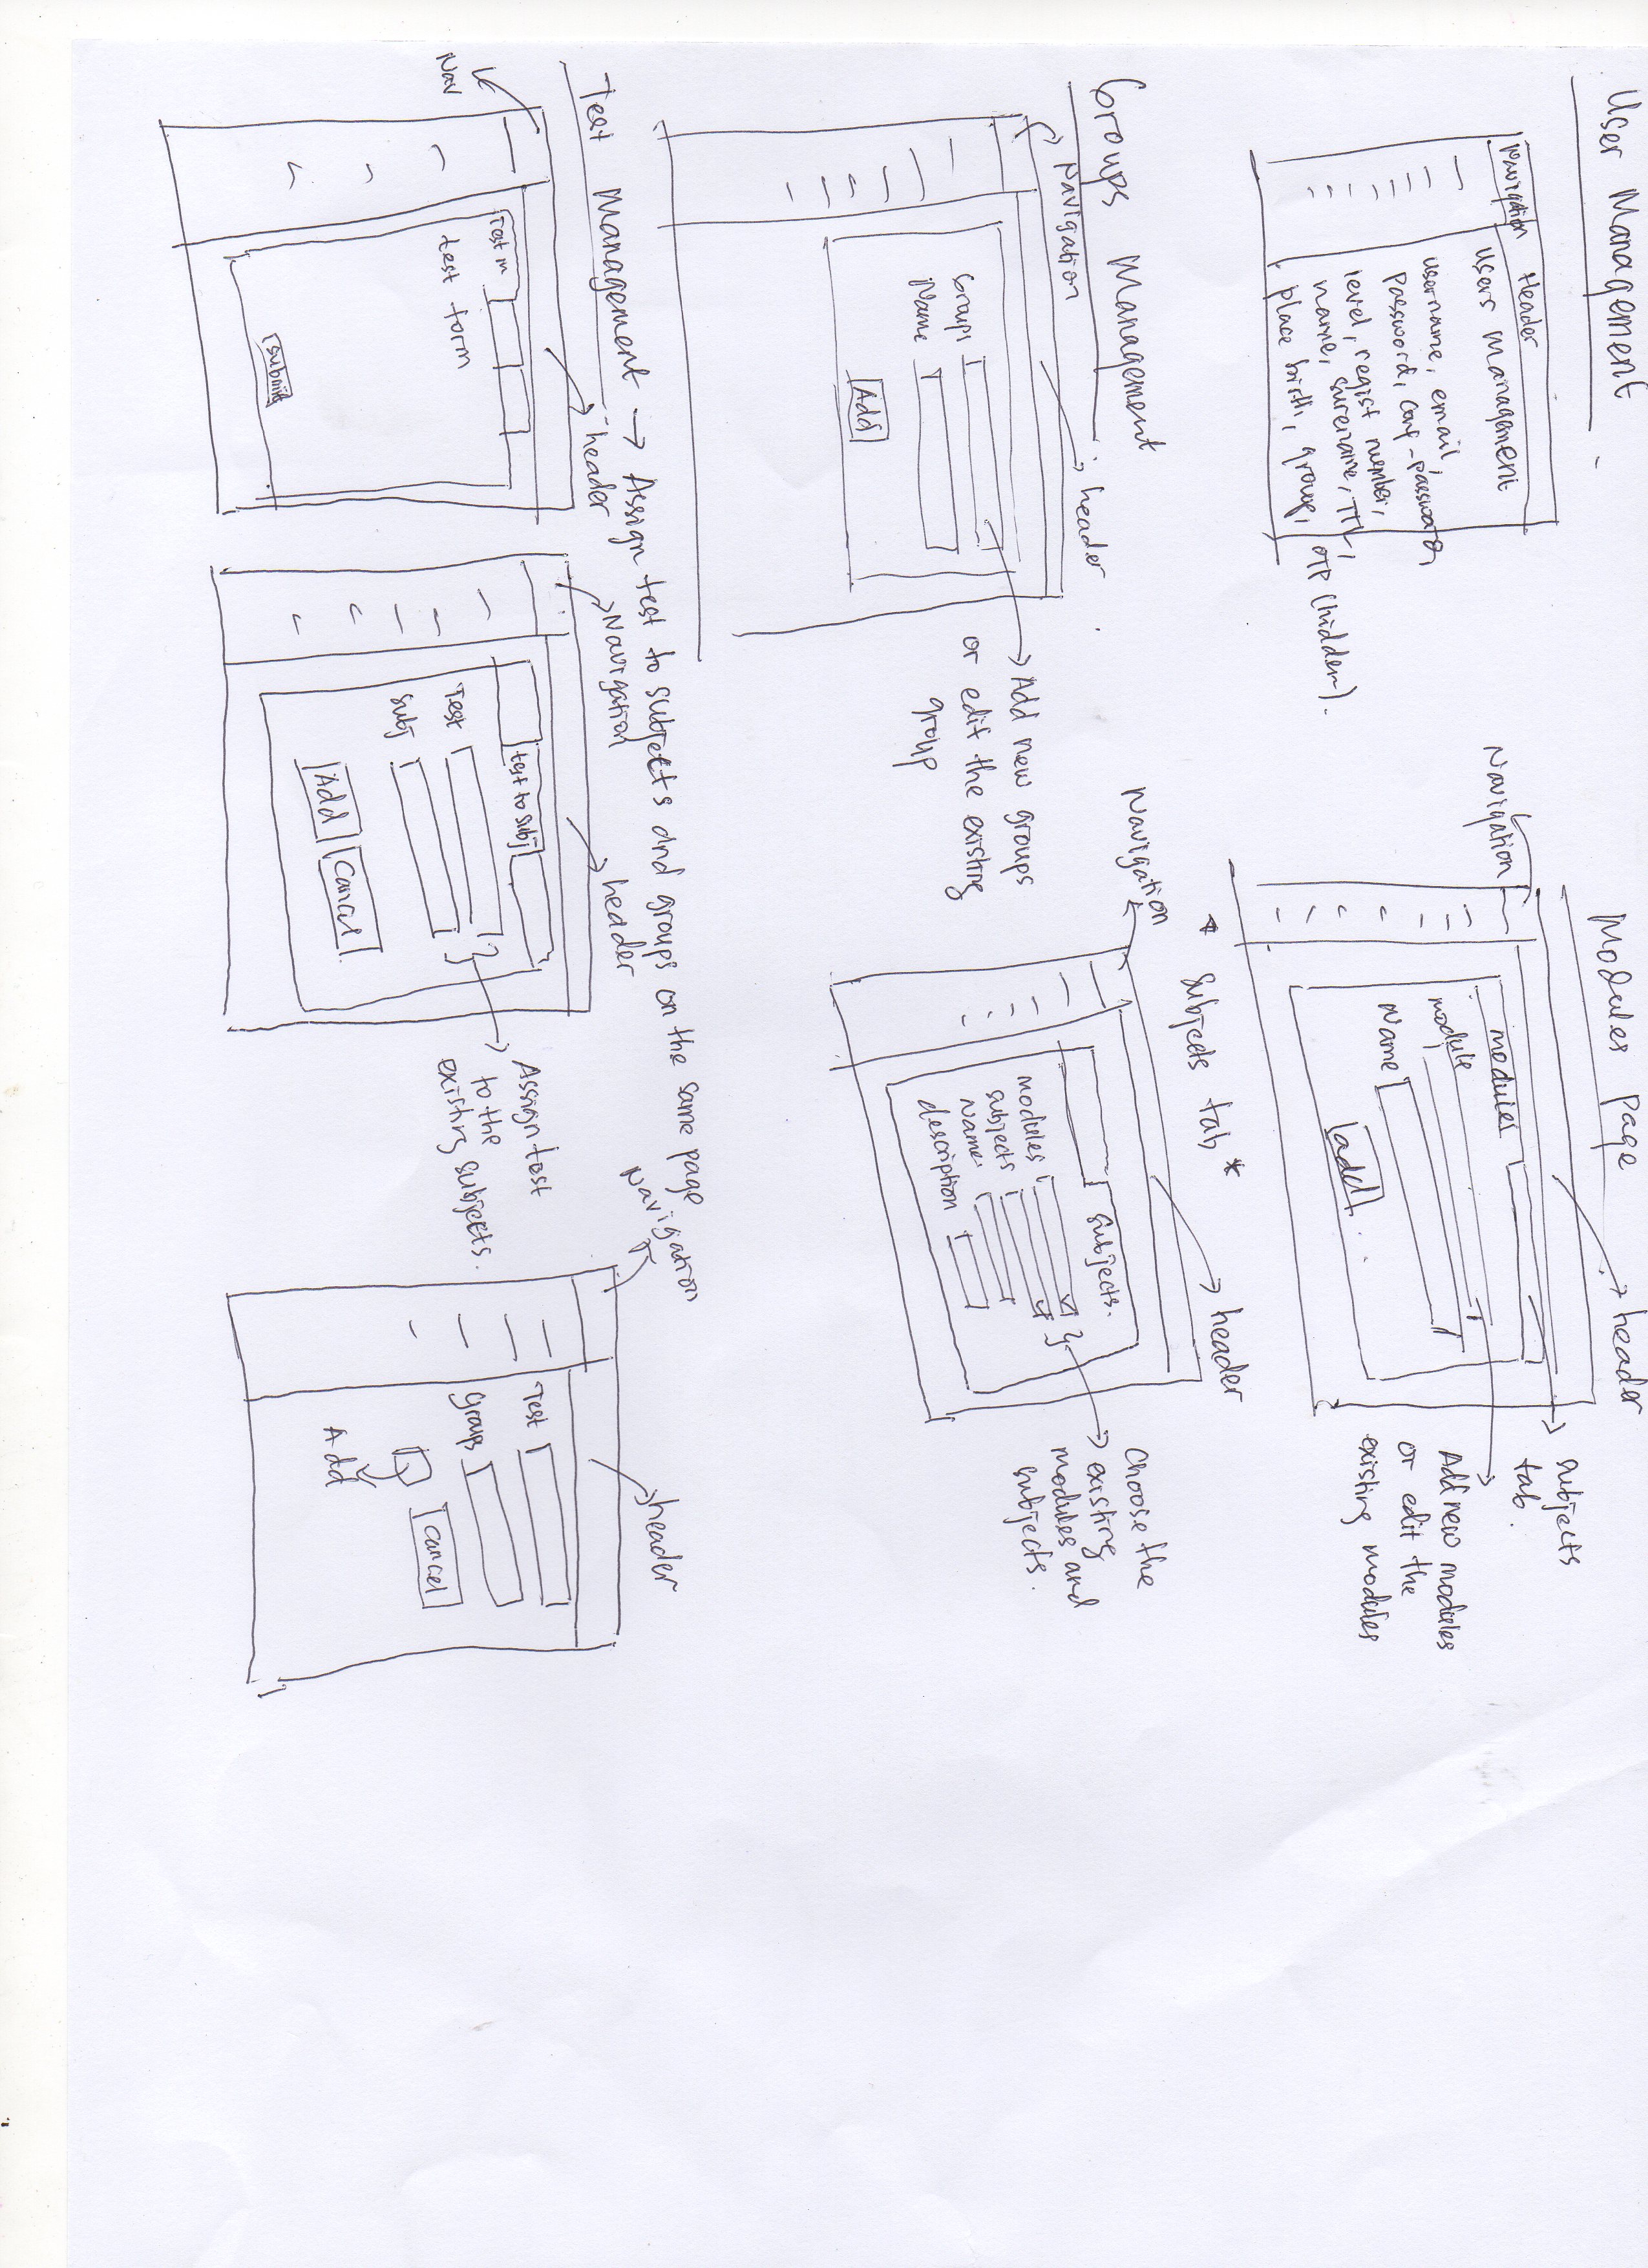 User Management
Navigation Header
Users Management
username, email,
password, conf-password,
level, regist number,
name, surename, TTL,
place birth, group, OTP (hidden).
Modules page
header
Navigation
subjects
tab.
modules
module
Name
add
Add new modules
or edit the
existing modules
* Subjects tab *
header
Navigation
subjects.
modules
subjects
Name
description
Choose the
existing
modules and
subjects.
Groups Management
Navigation
header
Groups
Name
Add
Add new groups
or edit the existing
group
Test Management → Assign test to subjects and groups on the same page
header
Nav
Test m
test form
submit
Navigation
header
test to subj
Test
Subj
Add Cancel
Assign test
to the
existing subjects.
Navigation
header
Test
Groups
Cancel
Add